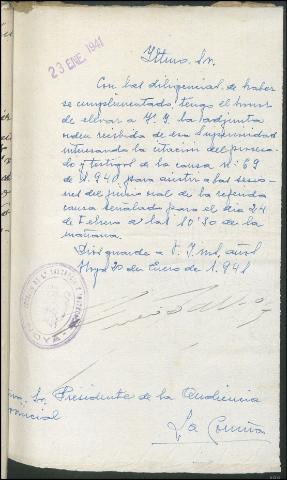 23 ENE. 1941
Iltmo. Sr.
Con las diligencias de haber
se cumplimentado tengo el honor
de elevar a V. I. la adjunta
orden recibida de esa Superioridad
interesando la citación del procesa-
do y testigos de la causa nº 69
de 1.940 para asistir a las sesio-
nes del juicio oral de la referida
causa señalado para el día 24
de Febrero a las 10'30 de la
mañana.
Dios guarde a V. I. ms. años
Noya 20 de Enero de 1.941
Sr. Presidente de la Audiencia
vincial
La Coruña